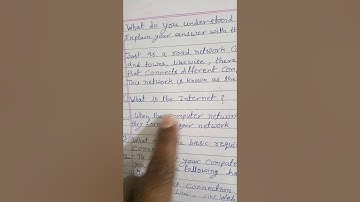 What do you understand
Explain your answer with th
Just as a road network C
and towns, likewise, there
that connects different Com
This network is known as the
What is the Internet?
When the computer network
they form your network
What the basic requi
Connec
To your Compute
the following ha
Connection
Line, Web